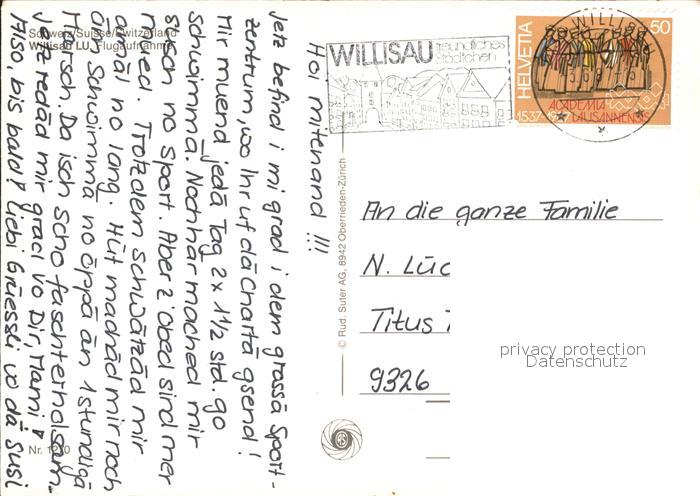 Schweiz/Suisse/Switzerland
Willisau LU, Flugaufnahme
Hoi mitenand !!!
Jetz befind i mi grad i dem grossä Sport-
zentrum, wo Ihr uf dä Chartä gsend!
Mir müend jedä Tag 2x 1½ Std. go
Schwimmä. Nochhär mached mir
süsch no Sport. Aber z'obed sind mer
müed. Trotzdem schwätzäd mir
amäl no lang. Hüt machäd mir noch
äm Schwimmä no öppä än 1stündigä
Marsch. Da isch scho fascht erholsam.
Jetz redäd mir grad vo Dir, Mami!
Also, bis bald! Liebi Grüessli vo dä Susi
Nr. 1270
© Rud. Suter AG, 8942 Oberrieden-Zürich
WILLISAU freundliches
Städtchen
WILLISAU
HELVETIA
50
ACADEMIA
1537-19 LAUSANNENSIS
An die ganze Familie
N. Lüc
Titus
9326
privacy protection
Datenschutz